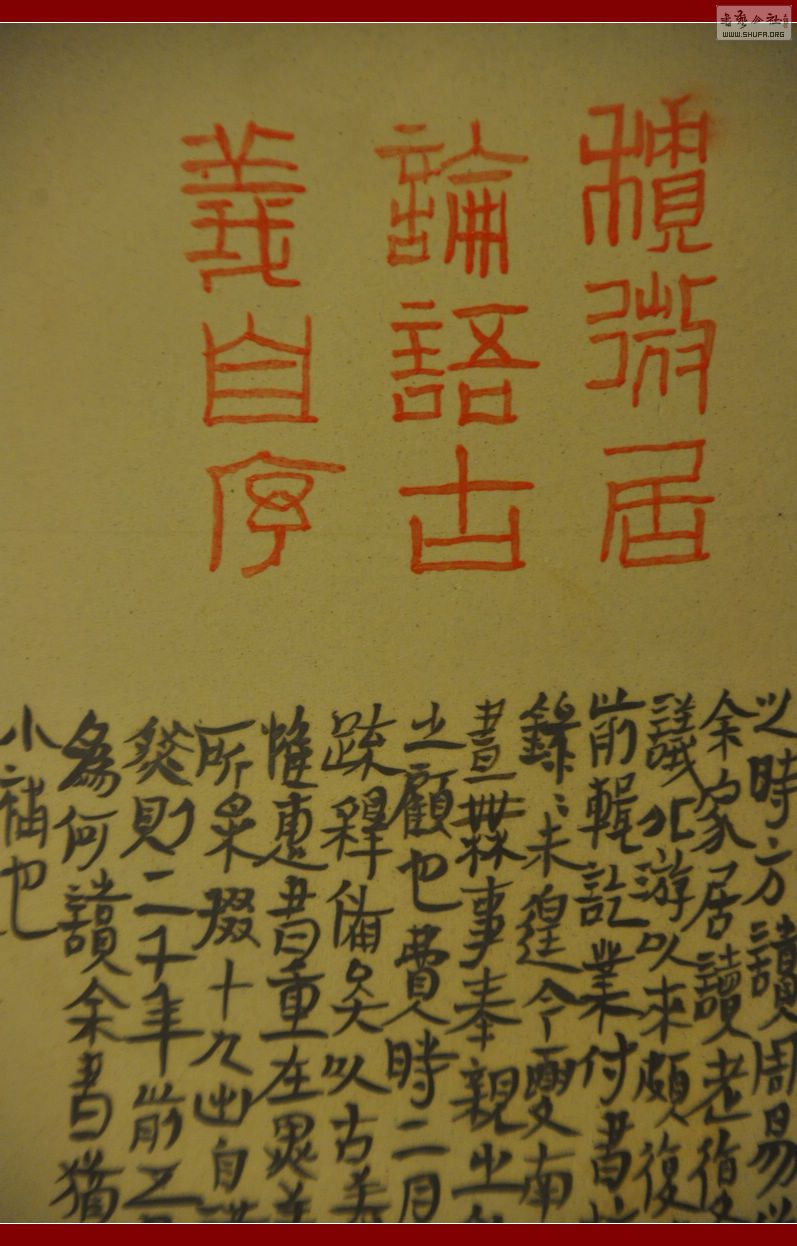 書藝公社
WWW.SHUFA.ORG
積微居
論語古
義自序
以時方讀周易
余家居讀老復
議北游以來頗復
前輯訖業付書
錄〻未遑今夏南
晝無事奉親之
之顧也費時二月
疏釋備矣以古義
惟惠書重在
所采掇十九出自
然則二千年前之
為何讀余書猶
小補也